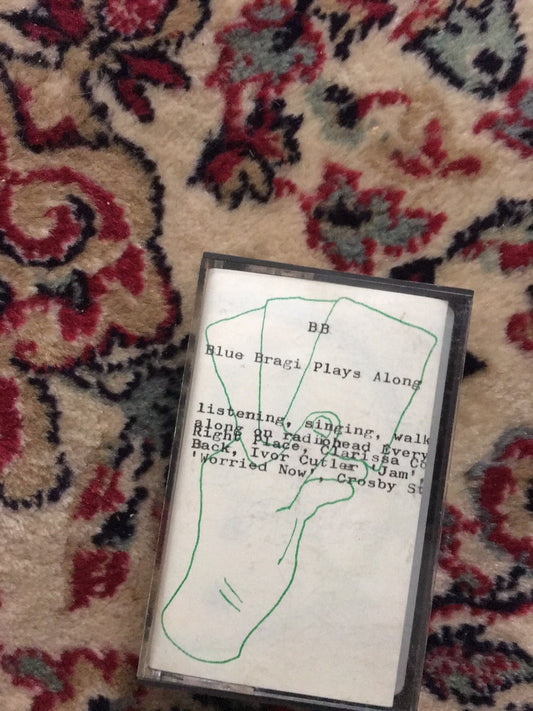 BB
Blue Bragi Plays Along
listening, singing, walk
along on radiohead Every
Right Place, Clarissa Co
Back, Ivor Cutler 'Jam',
'Worried Now', Crosby St